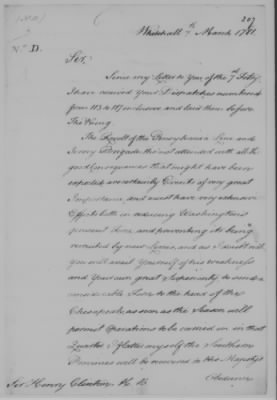 207
Whitehall 7th March 1781.
No. D.
Sir,
Since my Letter to You of the 7th Feb'ry
I have received Your Dispatches numbered
from 113 to 117 inclusive and laid them before
The King.
The Revolt of the Pennsylvania Line and
Jersey Brigade tho' not attended with all the
good Consequences that might have been
expected are certainly Events of very great
Importance, and must have very extensive
Effects both in reducing Washington's
present Force, and preventing its being
recruited by new Levies, and as I doubt not
you will avail Yourself of his weakness
and Your own great Superiority, to send a
considerable Force to the head of the
Chesapeak as soon as the Season will
permit Operations to be carried on in that
Quarter I flatter myself the Southern
Provinces will be recovered to His Majesty's
Obedience
Sir Henry Clinton K. B.